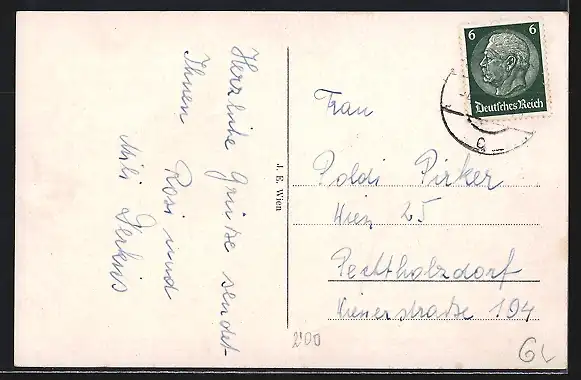 Herzliche Grüße sendet
Ihnen Rosi und
Mili
J. E. Wien
6 6
Deutsches Reich
Frau
Poldi Pirker
Wien 25
Pechtholzdorf
Wienerstraße 194
200